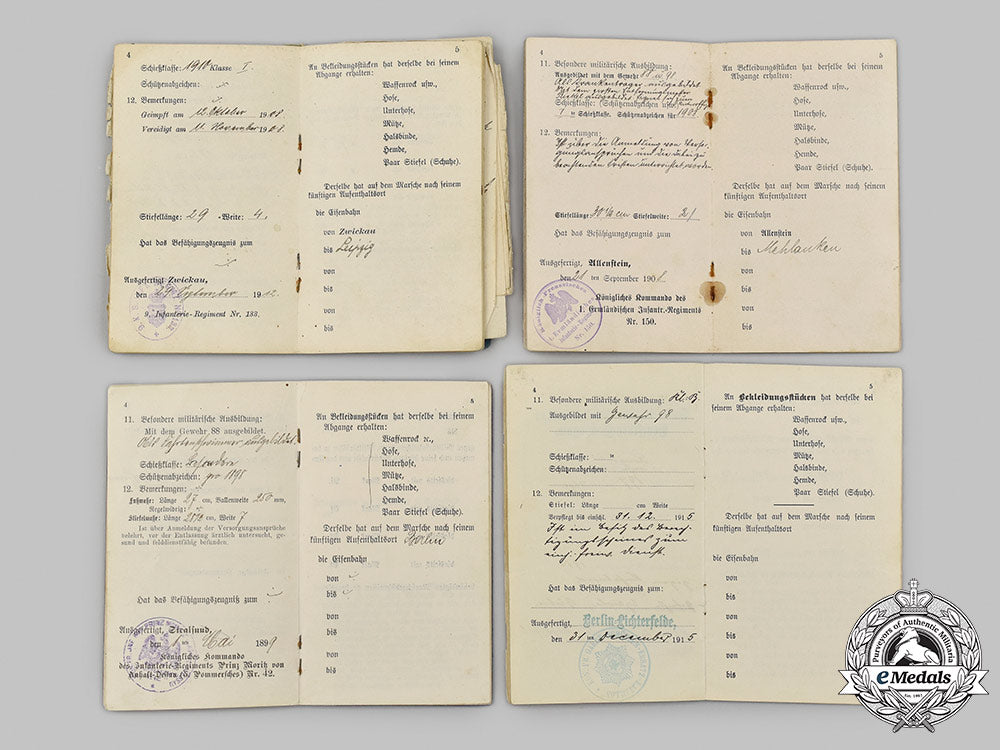 4
Schießklasse: 1910 Klasse I.
Schützenabzeichen:
12. Bemerkungen:
Geimpft am 12. Oktober 1908
Vereidigt am 11. November 1908
Stiefellänge: 29 -Weite: 4.
Hat das Befähigungszeugnis zum
Ausgefertigt Zwickau,
den 29 September 19
9. Infanterie-Regiment Nr. 133.
5
An Bekleidungsstücken hat derselbe bei seinem
Abgange erhalten:
Waffenrock usw.
Hose,
Unterhose,
Mütze,
Halsbinde,
Hemde,
Paar Stiefel (Schuhe).
Derselbe hat auf dem Marsche nach seinem
künftigen Aufenthaltsort
die Eisenbahn
von Zwickau
bis Leipzig
von
bis
von
bis
von
bis
4
11. Besondere militärische Ausbildung:
Ausgebildet mit dem Gewehr 88 u. 98
Als Krankenträger ausgebildet
Schießklasse: (Schützenabzeichen
1 Schießklasse. Schützenabzeichen für 1908.
12. Bemerkungen:
Ist über die Anmeldung von Verso-
unterrichtet worden.
Stiefellänge cm Stiefelweite: 2/
Hat das Befähigungszeugnis zum
Ausgefertigt, Allenstein,
den ten September 1908
Königliches Kommando des
1. Ermländischen Infantr.-Regiments
Nr. 150.
5
An Bekleidungsstücken hat derselbe bei seinem
Abgange erhalten:
Waffenrock usw.
Hose,
Unterhose,
Mütze,
Halsbinde,
Hemde,
Paar Stiefel (Schuhe).
Derselbe hat auf dem Marsche nach seinem
künftigen Aufenthaltsort
die Eisenbahn
von Allenstein
bis Mehlauken
von
bis
von
bis
von
bis
4
11. Besondere militärische Ausbildung:
Mit dem Gewehr 88 ausgebildet.
ausgebildet.
Schießklasse: Besondere
Schützenabzeichen: pro 1898
12. Bemerkungen:
Fußmaße: Länge 27 cm, Ballenweite 250 mm,
Regelwidrig:
Stiefelmaße: Länge cm, Weite 7
Ist über Anmeldung der Versorgungsansprüche
belehrt, vor der Entlassung ärztlich untersucht, ge-
sund und felddienstfähig befunden.
Hat das Befähigungszeugniß zum
Ausgefertigt, Stralsund,
den Mai 1899
Königliches Kommando
des Infanterie-Regiments Prinz Moritz von
Anhalt-Dessau (5. Pommersches) Nr. 42.
5
An Bekleidungsstücken hat derselbe bei seinem
Abgange erhalten:
Waffenrock ꝛc.,
Hose,
Unterhose,
Mütze,
Halsbinde,
Hemde,
Paar Stiefel (Schuhe).
Derselbe hat auf dem Marsche nach seinem
künftigen Aufenthaltsort Berlin
die Eisenbahn
von
bis
von
bis
von
bis
von
bis
4
11. Besondere militärische Ausbildung:
Ausgebildet mit Gewehr 98
Schießklasse:
Schützenabzeichen:
12. Bemerkungen:
Stiefel: Länge cm Weite
Verpflegt bis einschl. 31. 12. 1915
Ist im Besitz des Berech-
tigungsscheines zum
einj. freiw. Dienst.
Hat das Befähigungszeugnis zum:
Ausgefertigt, Berlin-Lichterfelde,
den 31 ten December 1915
5
An Bekleidungsstücken hat derselbe bei
seinem Abgange erhalten:
Waffenrock usw.,
Hose,
Unterhose,
Mütze,
Halsbinde,
Hemde,
Paar Stiefel (Schuhe).
Derselbe hat auf dem Marsche nach seinem
künftigen Aufenthaltsort
die Eisenbahn
von
bis
von
bis
von
bis
von
bis
Purveyors of Authentic Militaria
eMedals